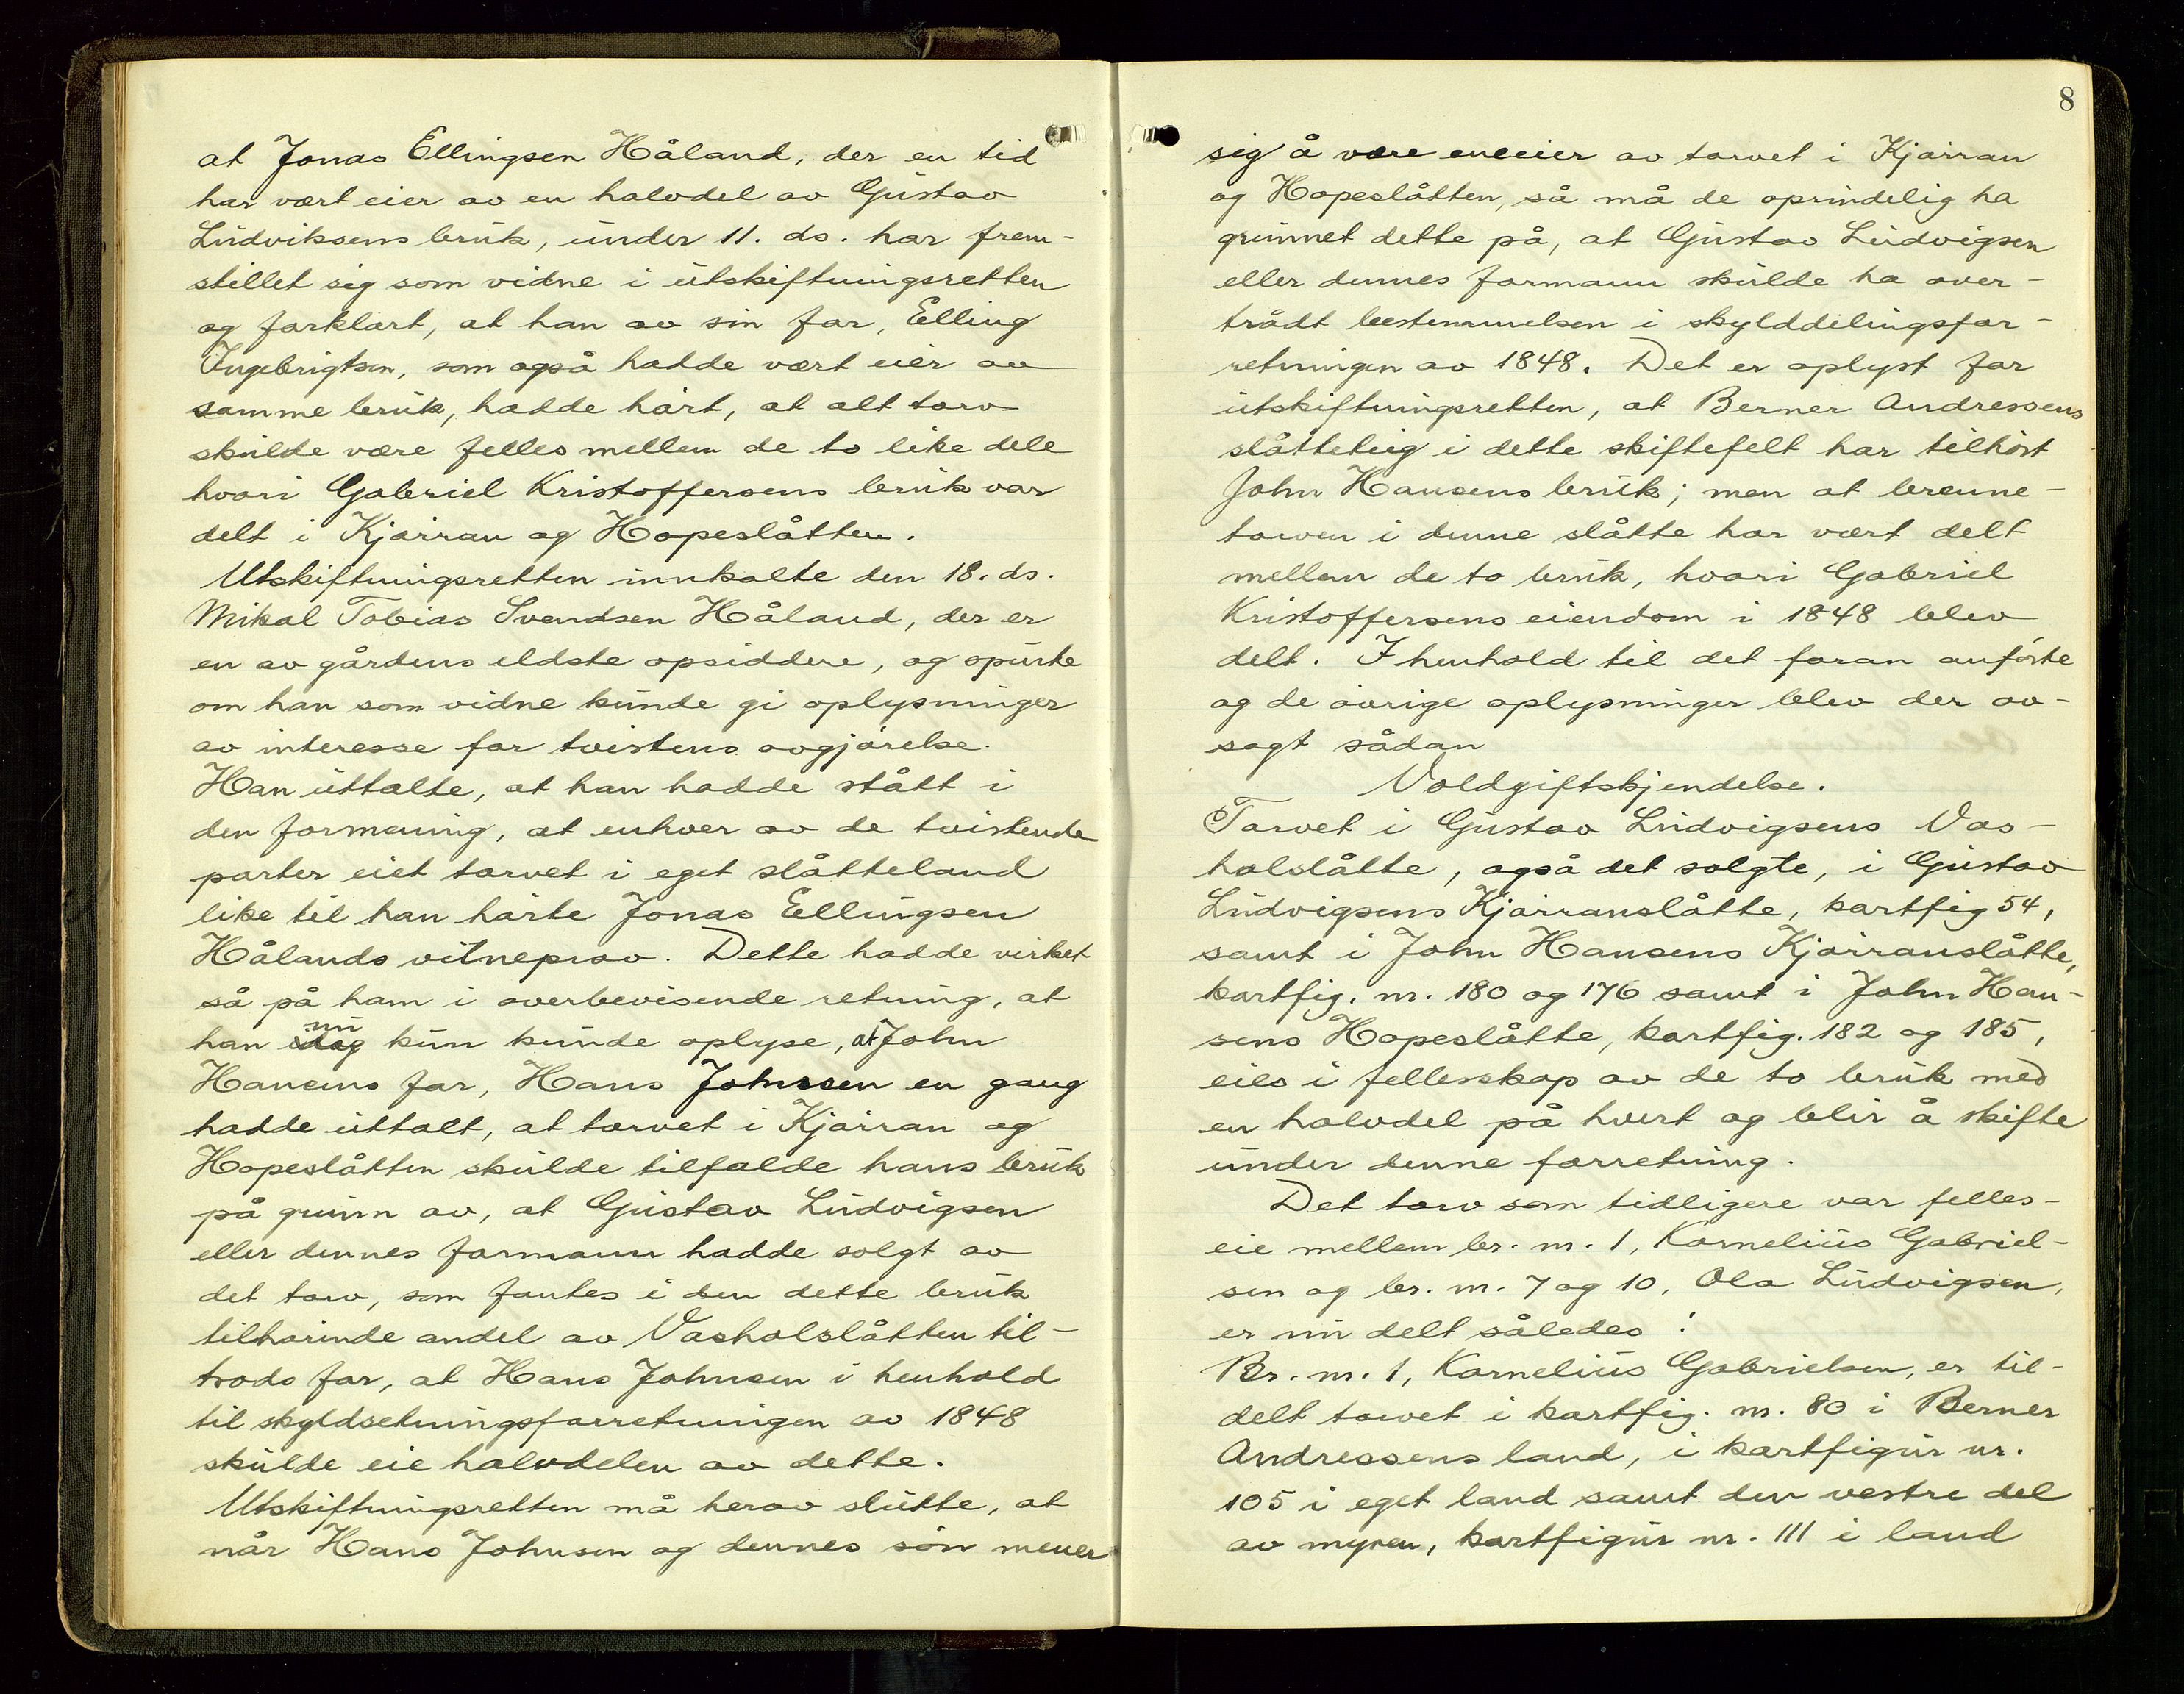 at Jonas Ellingsen Håland, der en tid
har vært eier av en halvdel av Gustav
Ludviksens bruk, under 11. ds. har frem-
stillet sig som vidne i utskiftningsretten
og forklart, at han av sin far, Elling
Ingebrigtsen, som også hadde vært eier av
samme bruk, hadde hørt, at alt torv
skulde være felles mellem de to like dele
hvori Gabriel Kristoffersens bruk var
delt i Kjørran og Hopeslåtten.
Utskiftningsretten innkalte den 18. ds.
Mikal Tobias Svendsen Håland, der er
en av gårdens eldste opsiddere, og spurte
om han som vidne kunde gi oplysninger
av interesse for tvistens avgjørelse.
Han uttalte, at han hadde stått i
den formening, at enhver av de tvistende
parter eiet torvet i eget slåtteland
like til han hørte Jonas Ellingsen
Hålands vitneprov. Dette hadde virket
så på ham i overbevisende retning, at
han idag nu kun kunde oplyse, at John
Hansens far, Hans Johnsen en gang
hadde uttalt, at torvet i Kjørran og
Hopeslåtten skulde tilfalde hans bruk
på grunn av, at Gustav Ludvigsen
eller dennes formann hadde solgt av
det torv, som fantes i den dette bruk
tilhørinde andel av Vasholslåtten til-
trods for, at Hans Johnsen i henhold
til skyldsetningsforretningen av 1848
skulde eie halvdelen av dette.
Utskiftningsretten må herav slutte, at
når Hans Johnsen og dennes søn mener
8
sig å være eneeier av torvet i Kjørran
og Hopeslåtten, så må de oprindelig ha
grunnet dette på, at Gustav Ludvigsen
eller dennes formann skulde ha over-
trådt bestemmelsen i skylddelingsfor-
retningen av 1848. Det er oplyst for
utskiftningsretten, at Berner Andressens
slåtteteig i dette skiftefelt har tilhørt
John Hansens bruk; men at brenne-
torven i denne slåtte har vært delt
mellem de to bruk, hvori Gabriel
Kristoffersens eiendom i 1848 blev
delt. I henhold til det foran anførte
og de øvrige oplysninger blev der av-
sagt sådan
Voldgiftskjendelse.
Torvet i Gustav Ludvigsens Vas-
holslåtte, også det solgte, i Gustav
Ludvigsens Kjørranslåtte, kartfig 54,
samt i John Hansens Kjørranslåtte,
kartfig. nr. 180 og 176 samt i John Han-
sens Hopeslåtte, kartfig. 182 og 185,
eies i fellesskap av de to bruk med
en halvdel på hvert og blir å skifte
under denne forretning.
Det torv som tidligere var felles-
eie mellem br. nr. 1, Kornelius Gabriel-
sen og br. nr. 7 og 10, Ola Ludvigsen,
er nu delt således:
Br. nr. 1, Kornelius Gabrielsen, er til-
delt torvet i kartfig. nr. 80 i Berner
Andressens land, i kartfigur nr.
105 i eget land samt den vestre del
av myren, kartfigur nr. 111 i land